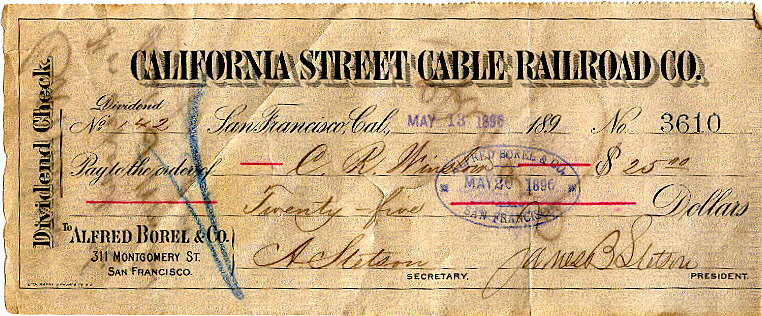 CALIFORNIA STREET CABLE RAILROAD CO.
Dividend Check.
Dividend
No. 142 San Francisco, Cal., MAY 13 1896 189 No. 3610
Pay to the order of C. R. Winslow $ 25.00
ALFRED BOREL & CO.
MAY 20 1896
SAN FRANCISCO
Twenty-five Dollars
To ALFRED BOREL & CO.
311 MONTGOMERY ST.
SAN FRANCISCO.
A Stetson SECRETARY.
James B Stetson PRESIDENT.